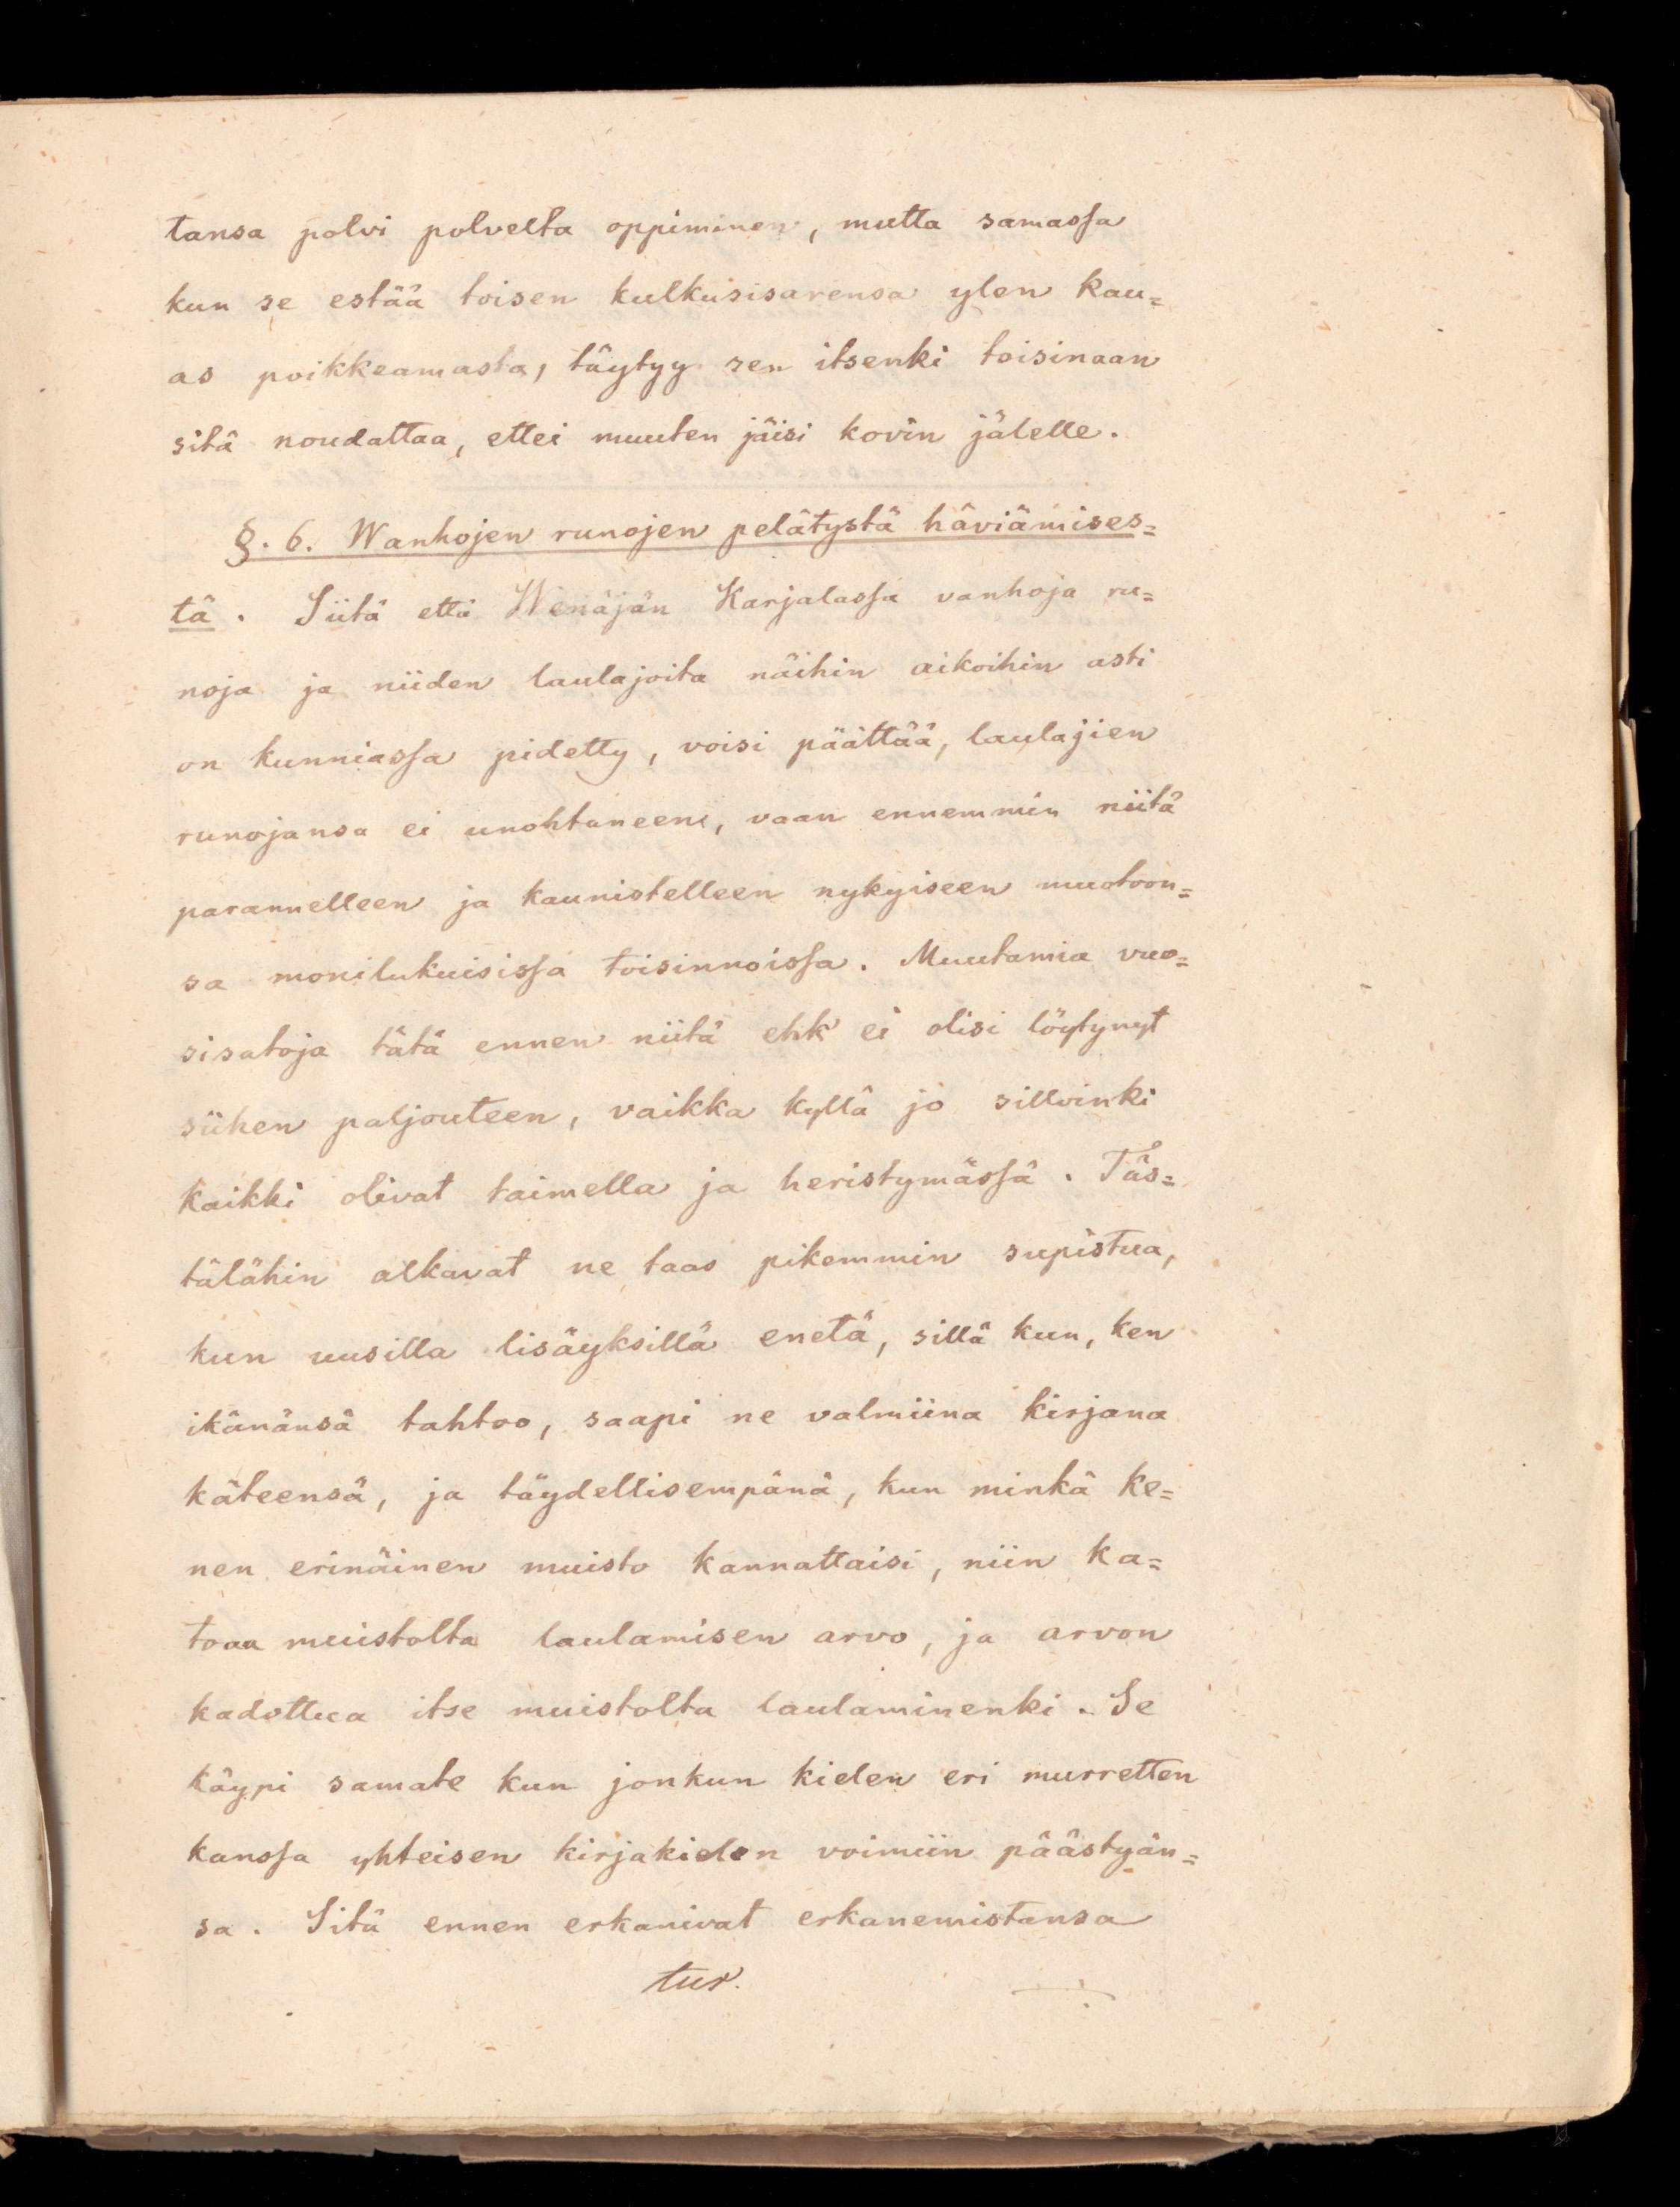 tansa polvi polvelta oppiminen, mutta samassa
kun se estää toisen kulkusisarensa ylen kau=
as poikkeamasta, täytyy sen itsenki toisinaan
sitä noudattaa, ettei muuten jäisi kovin jälelle.
§. 6. Wanhojen runojen pelätystä häviämises=
tä. Siitä että Wenäjän Karjalassa vanhoja ru=
noja ja niiden laulajoita näihin aikoihin asti
on kunniassa pidetty, voisi päättää, laulajien
runojansa ei unohtaneen, vaan ennemmin niitä
parannelleen ja kaunistelleen nykyiseen muotoon=
sa monilukuisissa toisinnoissa. Muutamia vuo=
sisatoja tätä ennen niitä ehk' ei olisi löytynyt
siihen paljouteen, vaikka kyllä jo silloinki
kaikki olivat taimella ja heristymässä. Täs=
tälähin alkavat ne taas pikemmin supistua,
kun uusilla lisäyksillä enetä, sillä kun, ken
ikänänsä tahtoo, saapi ne valmiina kirjana
käteensä, ja täydellisempänä, kun minkä ke=
nen erinäinen muisto kannattaisi, niin ka=
toaa muistolta laulamisen arvo, ja arvon
kadottua itse muistolta laulaminenki. Se
käypi samate kun jonkun kielen eri murretten
kanssa yhteisen kirjakielen voimiin päästyän=
sa. Sitä ennen erkanivat erkanemistansa
tur.